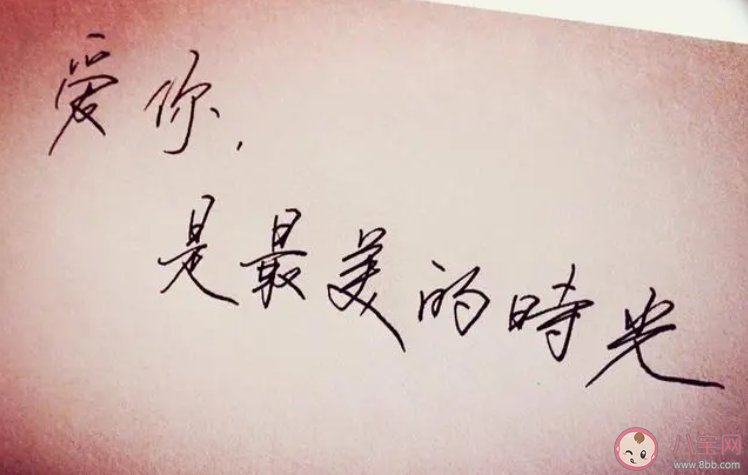 爱你,
是最美的時光
八宝网
www.8bb.com